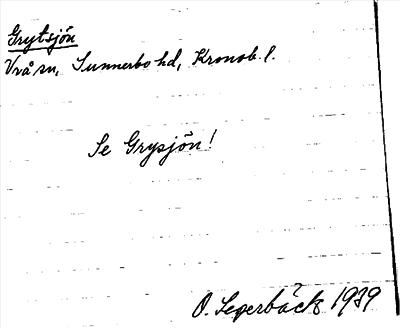 Grytsjön
Vrå sn, Sunnerbo hd, Kronob. l.
Se Grysjön!
O. Segerbäck 1939